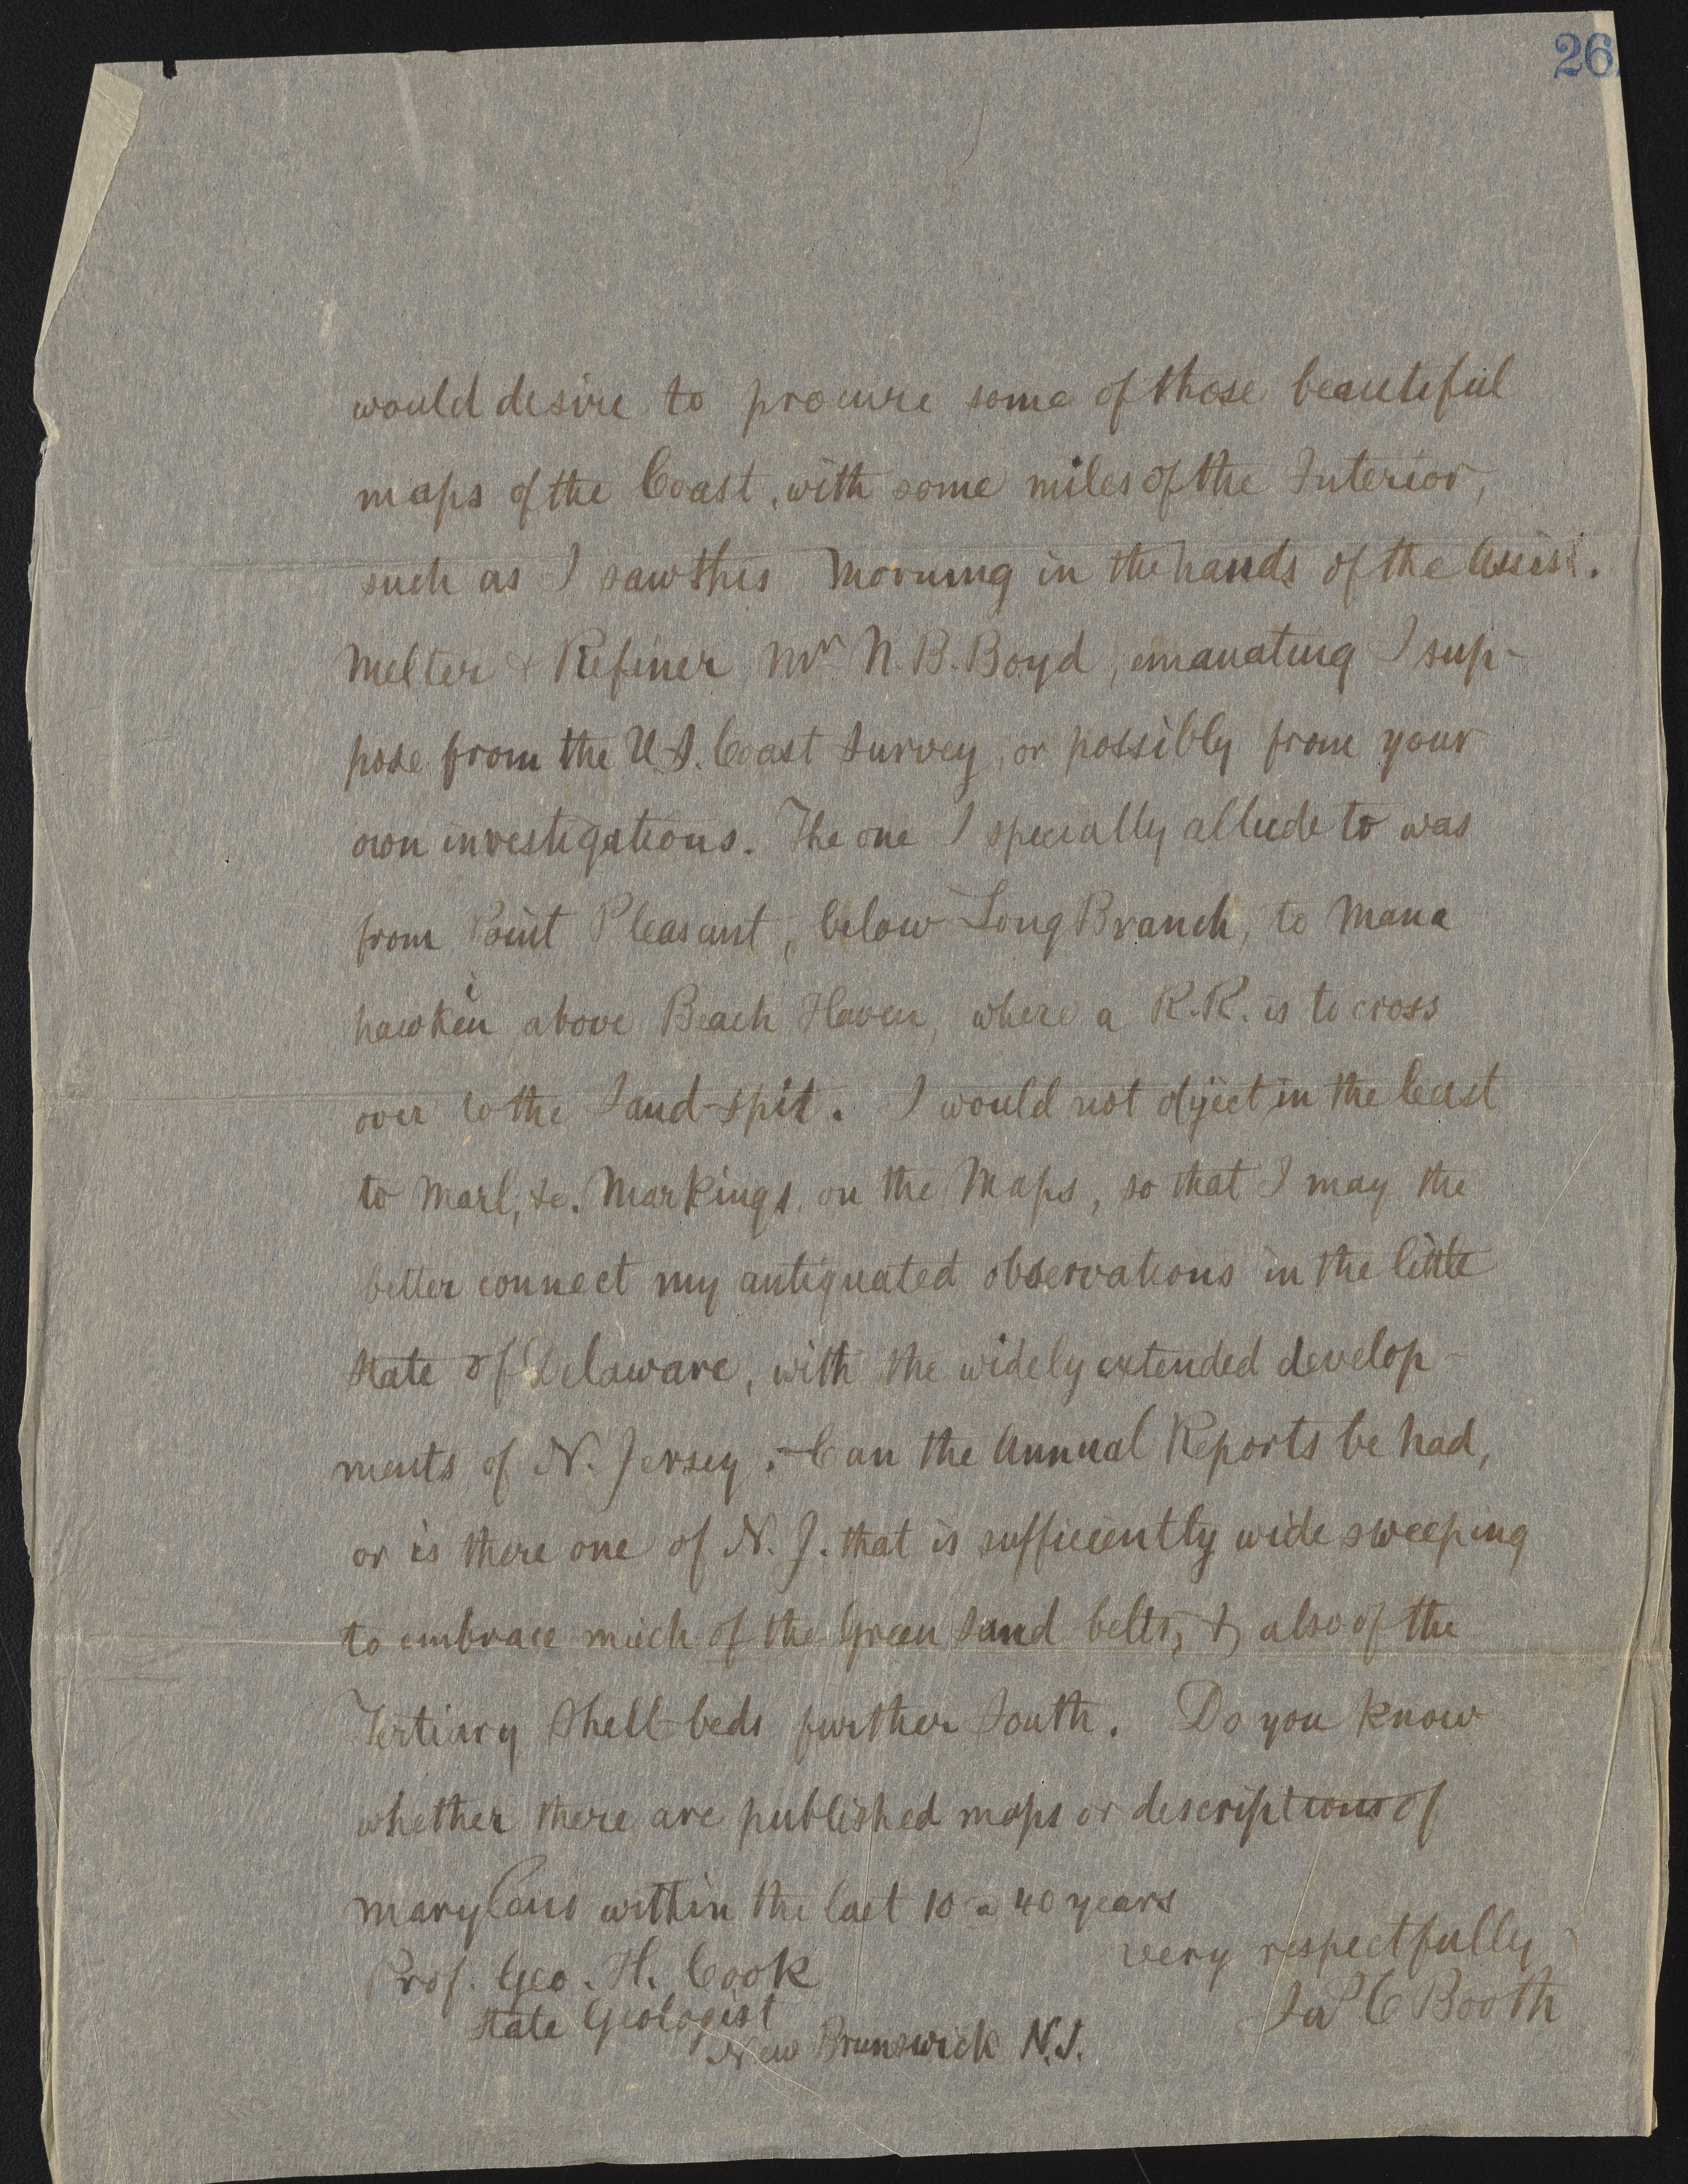 26
would desire to procure some of those beautiful
maps of the Coast, with some miles of the Interior,
such as I saw this Morning in the hands of the Assist.
Melter & Refiner, Mr N. B. Boyd, emanating I sup-
pose from the U.S. Coast Survey, or possibly from your
own investigations. The one I specially allude to was
from Point Pleasant, below Long Branch, to Mana
hawkin above Beach Haven, where a R.R. is to cross
over to the Sand-spit. I would not object in the least
to Marl, &c. Markings on the Maps, so that I may the
better connect my antiquated observations in the little
State of Delaware, with the widely extended develop-
ments of N. Jersey. - Can the Annual Reports be had,
or is there one of N. J. that is sufficiently wide sweeping
to embrace much of the Green Sand belts, & also of the
Tertiary Shell-beds further South. Do you know
whether there are published maps or descriptions of
Maryland within the last 10 a 40 years
very respectfully
Jas C Booth
Prof. Geo. H. Cook
State Geologist
New Brunswick N.J.